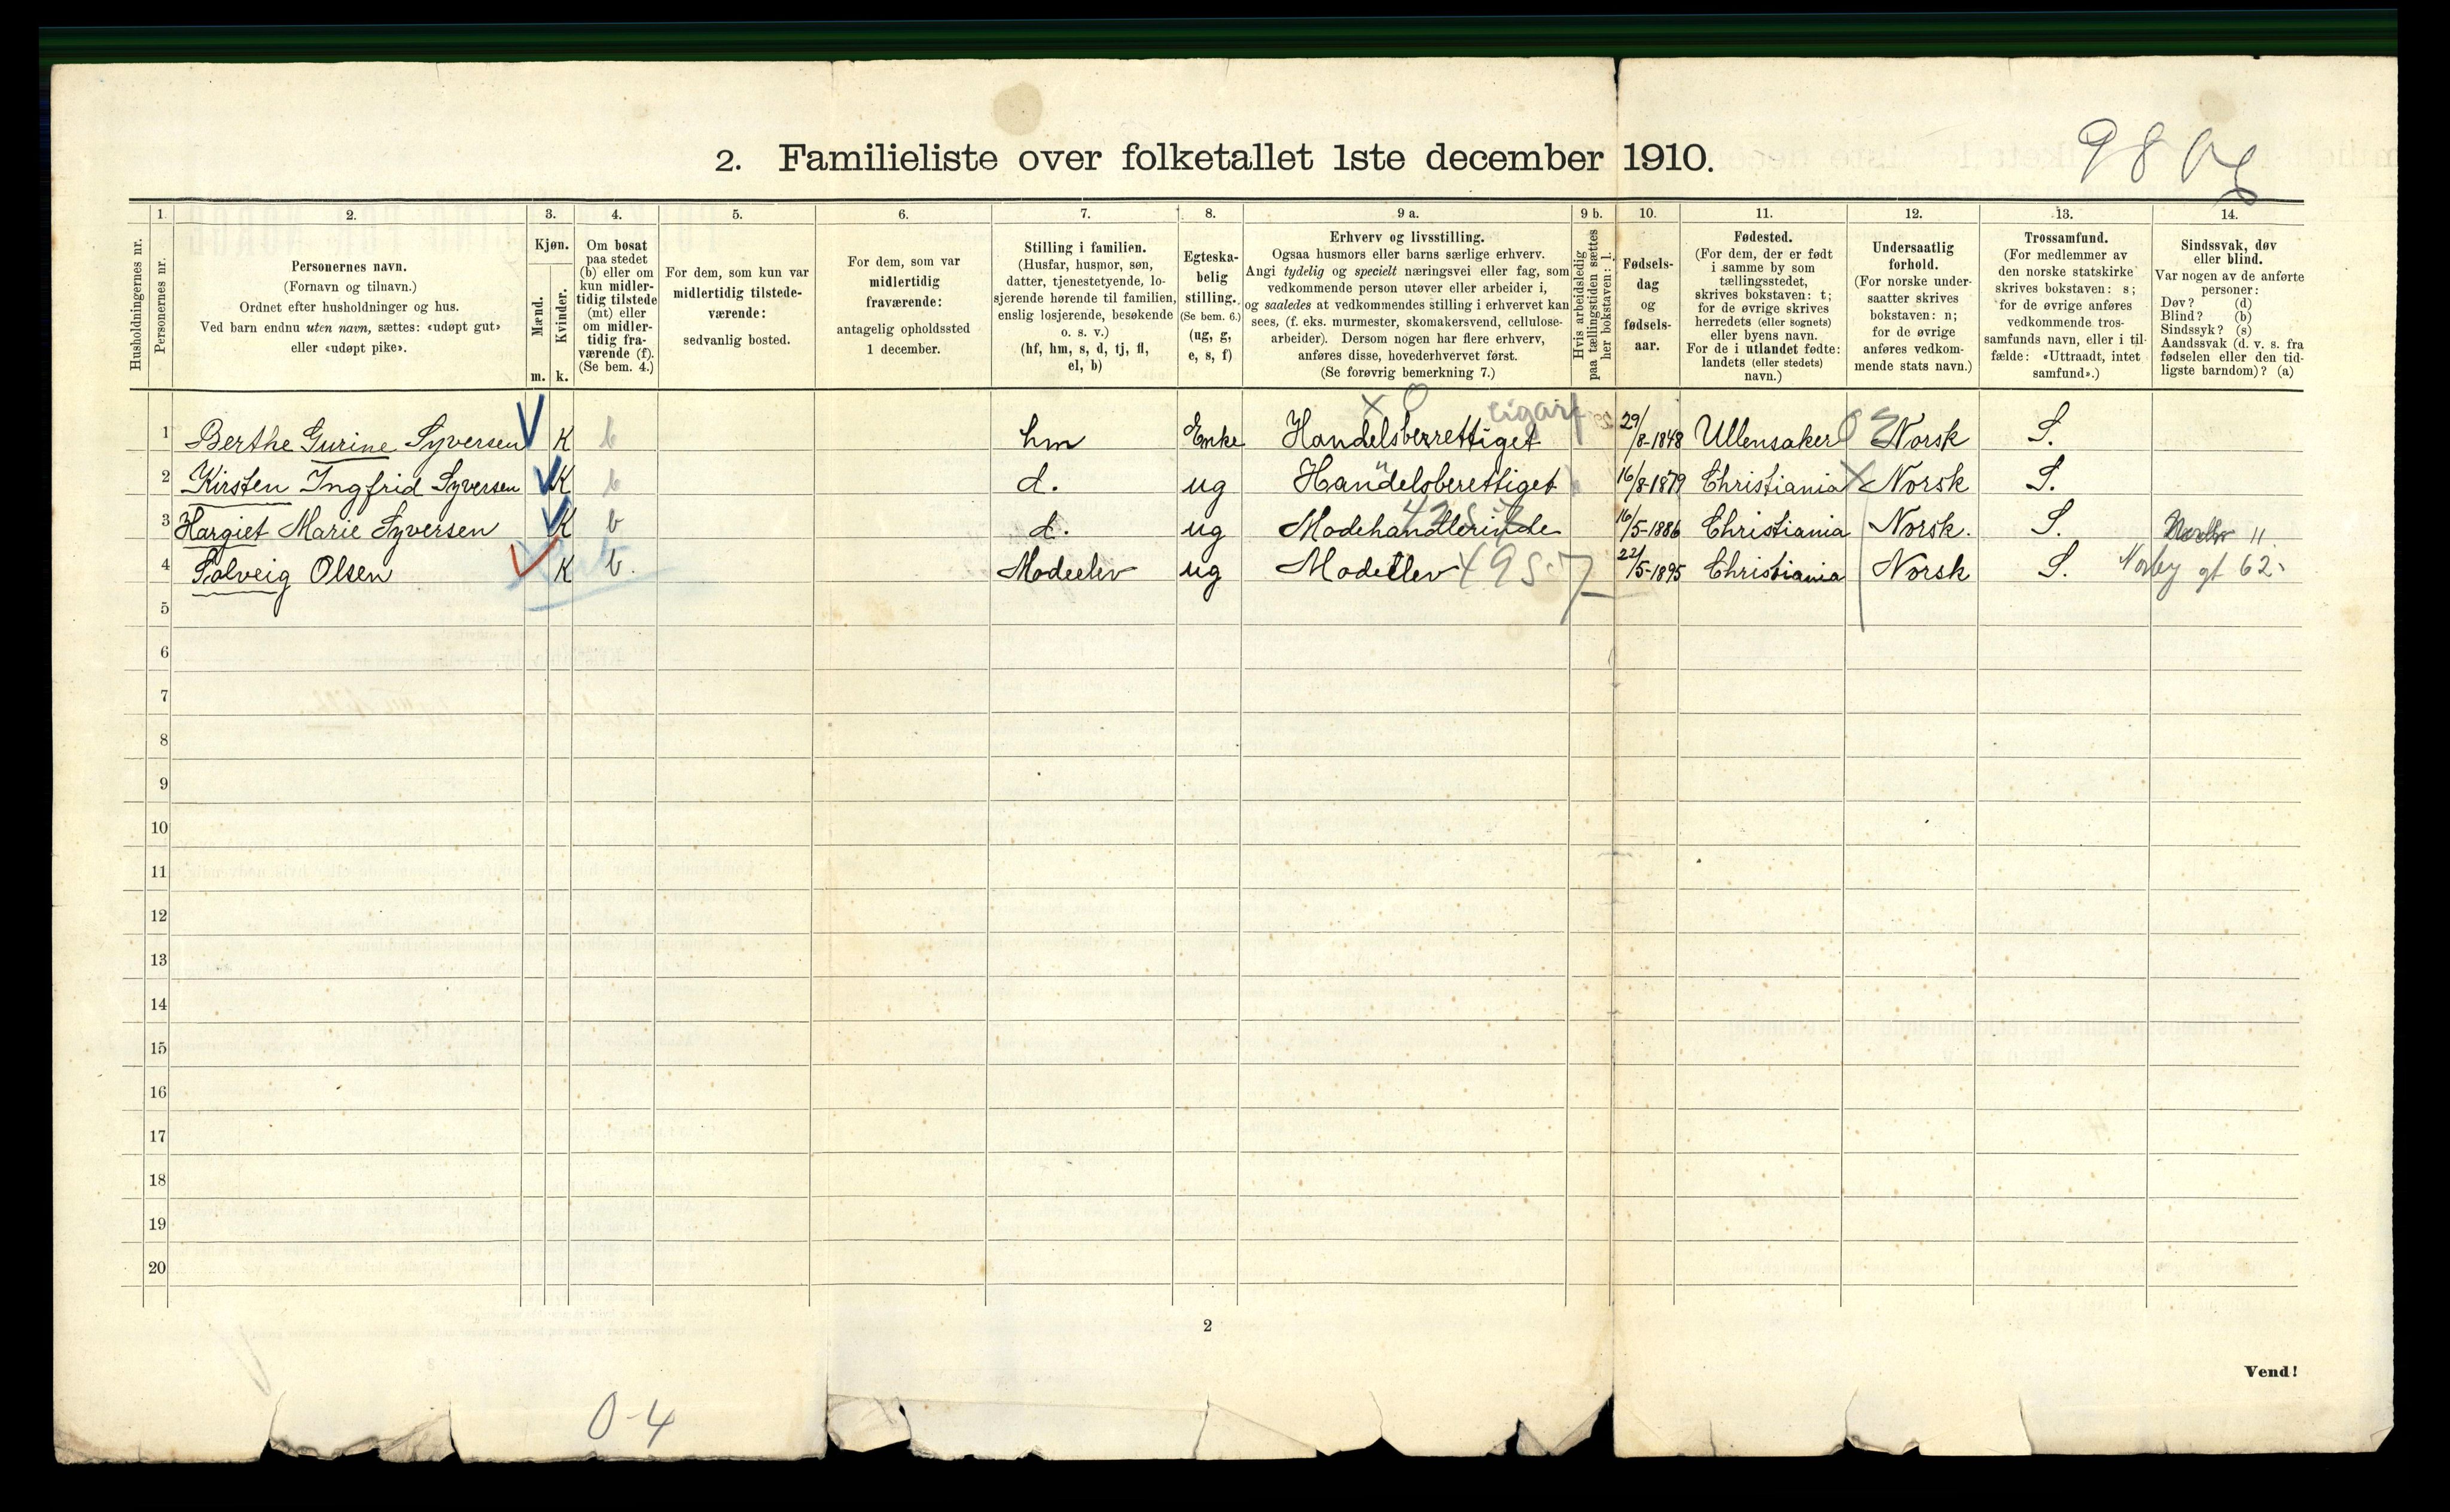 2. Familieliste over folketallet 1ste december 1910.
1. 2. 3. 4. 5. 6. 7. 8. 9 a. 9 b. 10. 11. 12. 13. 14.
Husholdningernes nr.
Personernes nr.
Personernes navn.
(Fornavn og tilnavn.)
Ordnet efter husholdninger og hus.
Ved barn endnu uten navn, sættes: «udøpt gut»
eller «udøpt pike».
Kjøn.
Mænd.
Kvinder.
m. k.
Om bosat
paa stedet
(b) eller om
kun midler-
tidig tilstede
(mt) eller
om midler-
tidig fra-
værende (f).
(Se bem. 4.)
For dem, som kun var
midlertidig tilstede-
værende:
sedvanlig bosted.
For dem, som var
midlertidig
fraværende:
antagelig opholdssted
1 december.
Stilling i familien.
(Husfar, husmor, søn,
datter, tjenestetyende, lo-
sjerende hørende til familien,
enslig losjerende, besøkende
o. s. v.)
(hf, hm, s, d, tj, fl,
el, b)
Egteska-
belig
stilling.
(Se bem. 6.)
(ug, g,
e, s, f)
Erhverv og livsstilling.
Ogsaa husmors eller barns særlige erhverv.
Angi tydelig og specielt næringsvei eller fag, som
vedkommende person utøver eller arbeider i,
og saaledes at vedkommendes stilling i erhvervet kan
sees, (f. eks. murmester, skomakersvend, cellulose-
arbeider). Dersom nogen har flere erhverv,
anføres disse, hovederhvervet først.
(Se forøvrig bemerkning 7.)
Hvis arbeidsledig
paa tællingstiden sættes
her bokstaven: l.
Fødsels-
dag
og
fødsels-
aar.
Fødested.
(For dem, der er født
i samme by som
tællingsstedet,
skrives bokstaven: t;
for de øvrige skrives
herredets (eller sognets)
eller byens navn.
For de i utlandet fødte:
landets (eller stedets)
navn.)
Undersaatlig
forhold.
(For norske under-
saatter skrives
bokstaven: n;
for de øvrige
anføres vedkom-
mende stats navn.)
Trossamfund.
(For medlemmer av
den norske statskirke
skrives bokstaven: s;
for de øvrige anføres
vedkommende tros-
samfunds navn, eller i til-
fælde: «Uttraadt, intet
samfund».)
Sindssvak, døv
eller blind.
Var nogen av de anførte
personer:
Døv? (d)
Blind? (b)
Sindssyk? (s)
Aandssvak (d. v. s. fra
fødselen eller den tid-
ligste barndom)? (a)
1 Berthe Gurine Syversen K b hm Enke Handelsberettiget cigarf 29/8-1848 Ullensaker Norsk S.
2 Kirsten Ingfrid Syversen K b d. ug Handelsberettiget 16/8-1879 Christiania Norsk S.
3 Hargiet Marie Syversen K b d. ug Modehandlerinde 16/5-1886 Christiania Norsk. S. 11.
4 Solveig Olsen K b. Modeelev ug Modeelev 4957 22/5-1895 Christiania Norsk S. Norby gt 62
5
6
7
8
9
10
11
12
13
14
15
16
17
18
19
20
2
Vend!
0-4